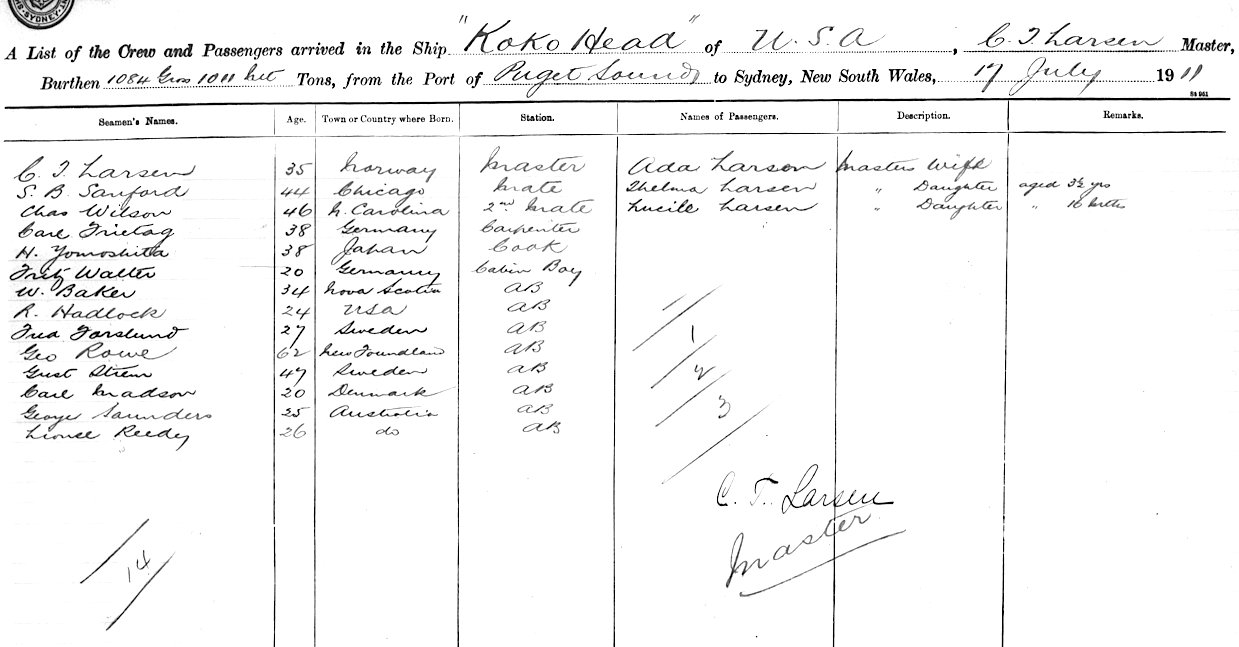 SYDNEY
A List of the Crew and Passengers arrived in the Ship "Koko Head" of U.S.A, C. T. Larsen Master,
Burthen 1084 Gros 1011 net Tons, from the Port of Puget Sound to Sydney, New South Wales, 17 July 1911
St 961
Seamen's Names. Age. Town or Country where Born. Station. Names of Passengers. Description. Remarks.
C. T. Larsen 35 Norway Master Ada Larson Masters Wife
S. B. Sanford 44 Chicago Mate Thelma Larsen " Daughter aged 3½ yrs
Chas Wilson 46 N. Carolina 2nd Mate Lucile Larsen " Daughter " 16 mths
Carl Frietag 38 Germany Carpenter
H. Yomoshita 38 Japan Cook
Fritz Walter 20 Germany Cabin Boy
W. Baker 34 Nova Scotia AB
R. Hadlock 24 USA AB
Fred Forslund 27 Sweden AB
Geo Rowe 62 New Foundland AB
Gust Strem 47 Sweden AB
Carl Madson 20 Denmark AB
George Saunders 25 Australia AB
Lionel Reedy 26 do AB
1
2
3
C. T. Larsen
Master
14